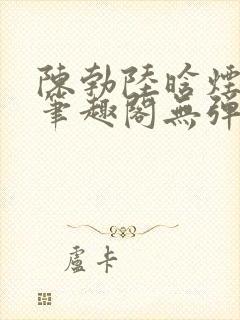 陳勃陸晗煙
筆趣閣無彈
盧卡